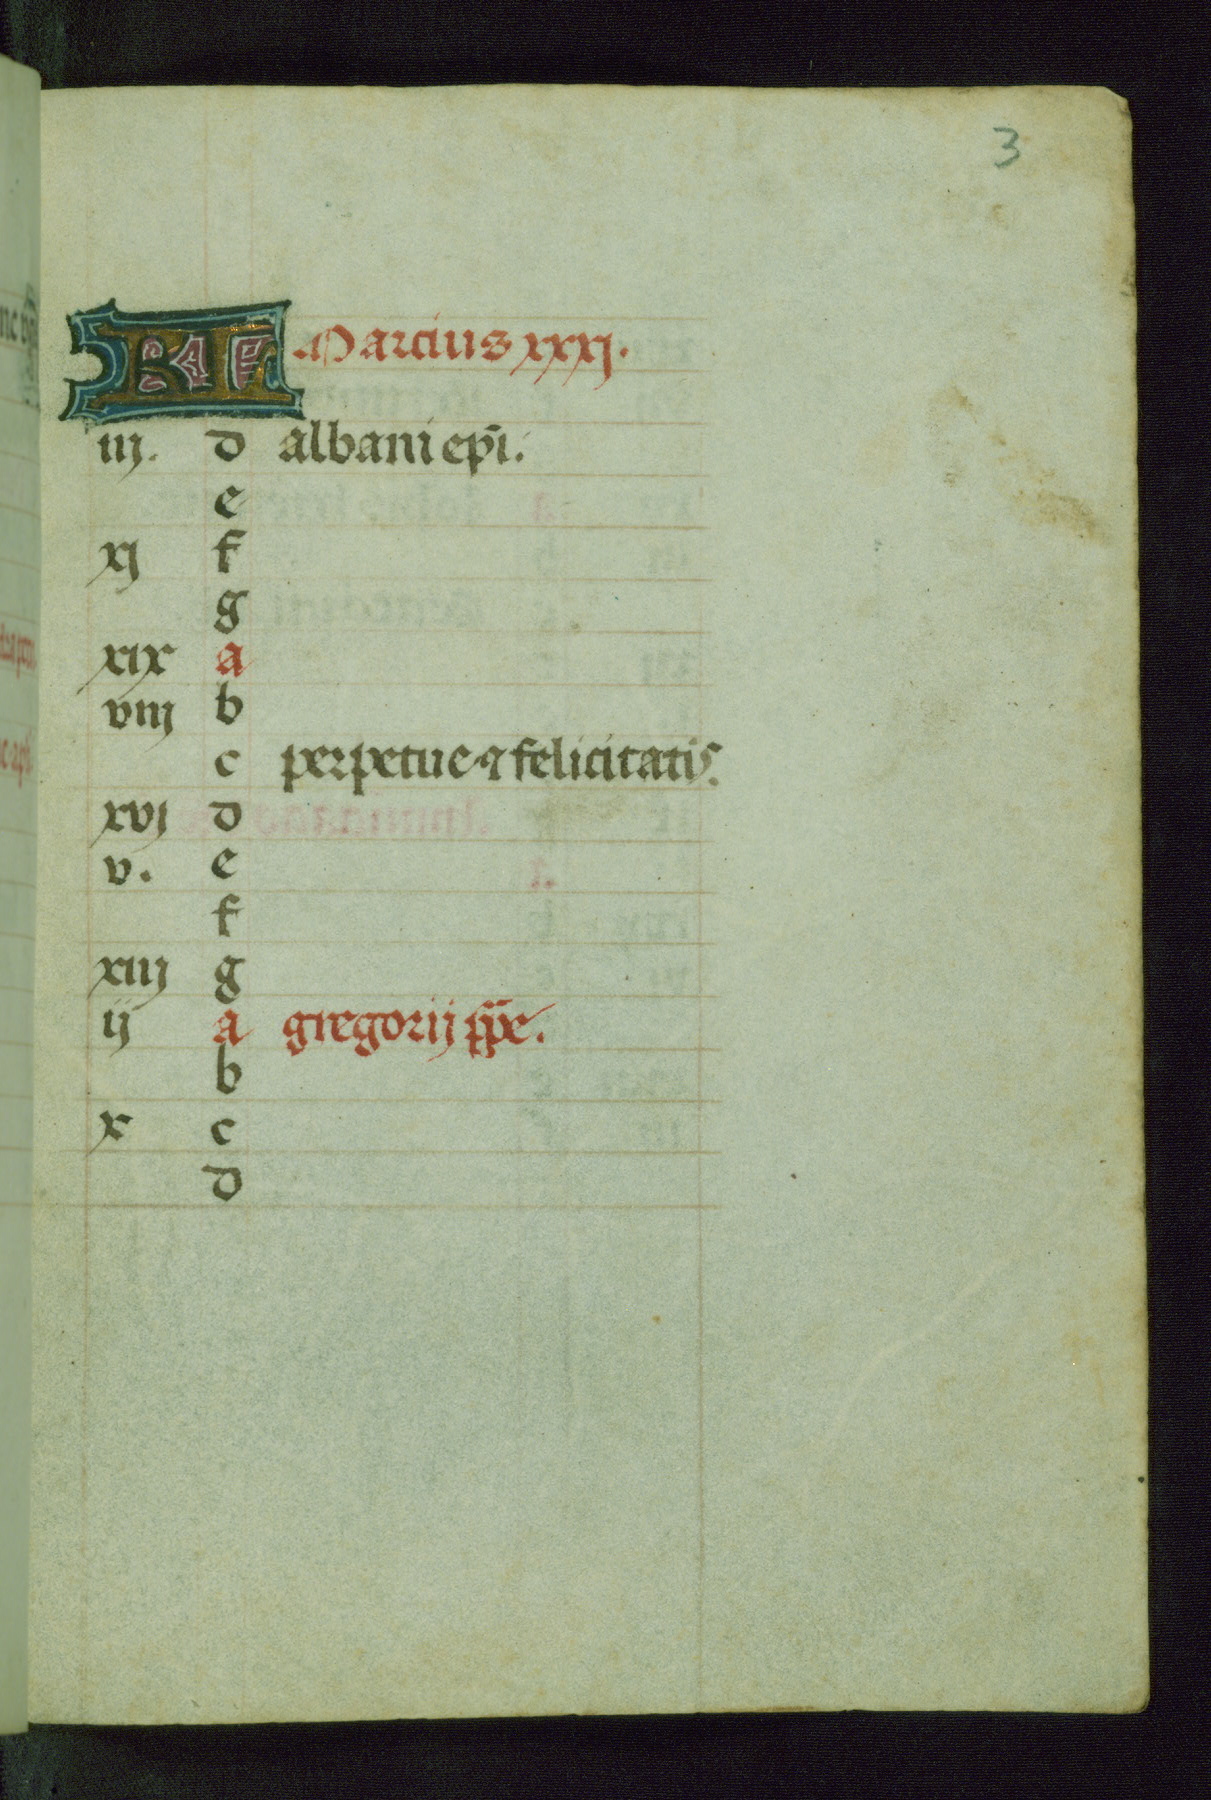 3
KL Marcius xxxj.
iij. d albani ep̄i.
e
xj f
g
xix a
viij b
c perpetue ⁊ felicitatis.
xvj d
v. e
f
xiij g
ij a gregorij pp̄e.
b
x c
d